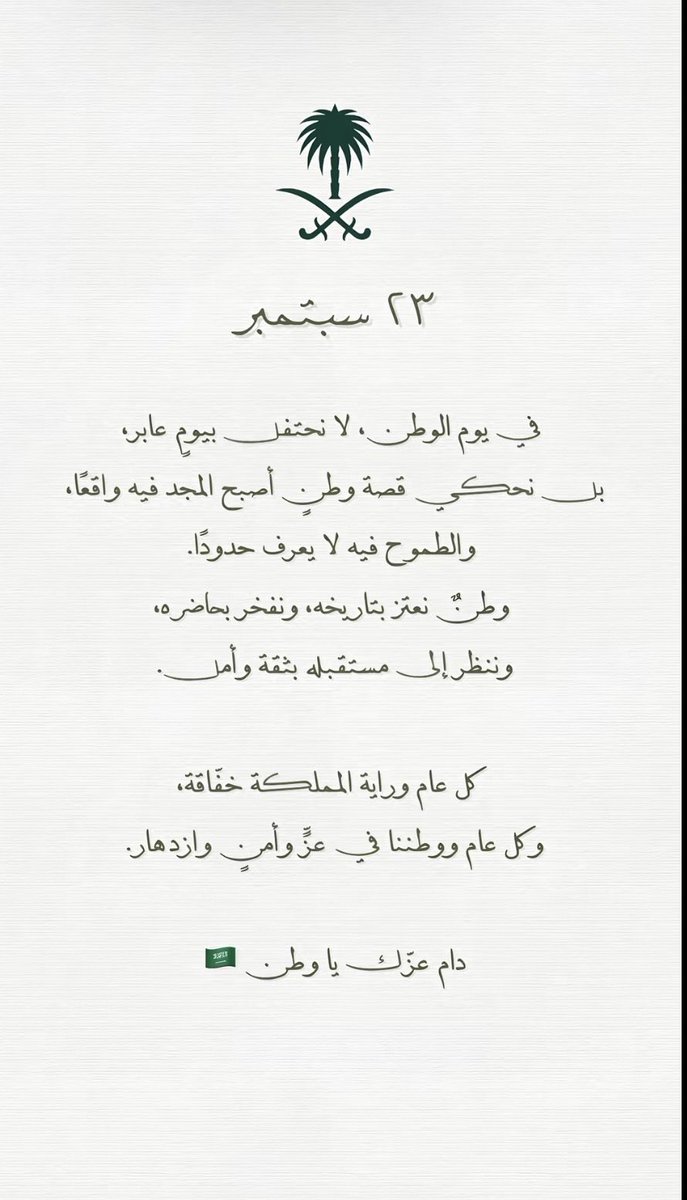 ٢٣ سبتمبر
في يوم الوطن، لا نحتفل بيومٍ عابر،
بل نحكي قصة وطنٍ أصبح المجد فيه واقعًا،
والطموح فيه لا يعرف حدودًا.
وطنٌ نعتز بتاريخه، ونفخر بحاضره،
وننظر إلى مستقبله بثقة وأمل.
كل عام وراية المملكة خفّاقة،
وكل عام ووطننا في عزٍّ وأمنٍ وازدهار.
دام عزّك يا وطن 🇸🇦